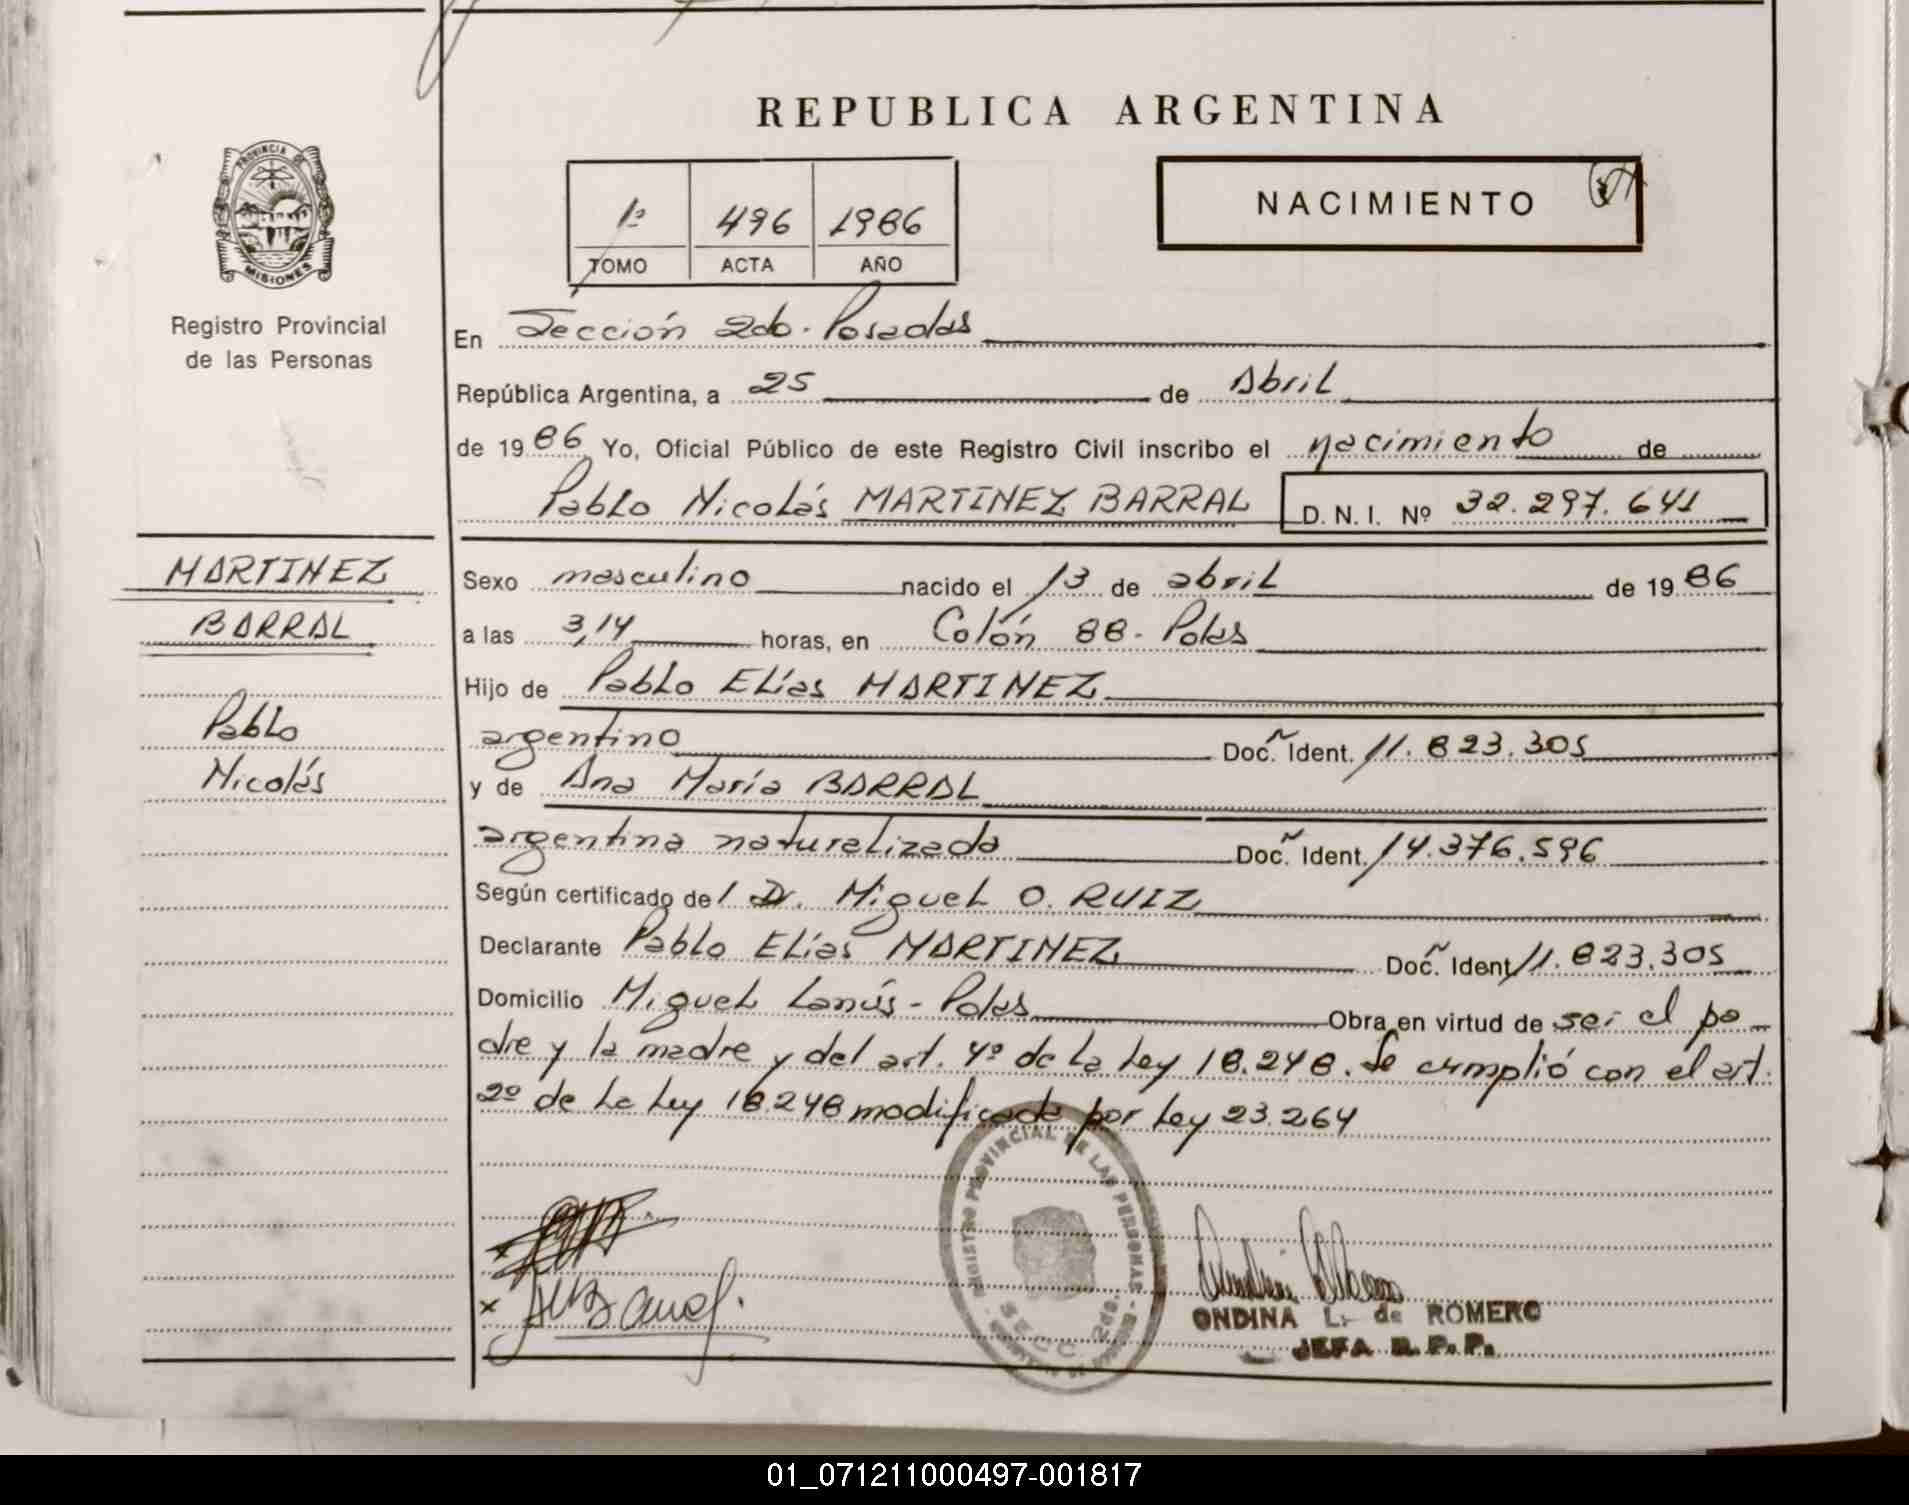 REPUBLICA ARGENTINA
PROVINCIA DE
MISIONES
Registro Provincial
de las Personas
1º 496 1986
TOMO ACTA AÑO
NACIMIENTO
En Sección 2da. Posadas
República Argentina, a 25 de Abril
de 1986 Yo, Oficial Público de este Registro Civil inscribo el nacimiento de
Pablo Nicolás MARTINEZ BARRAL D. N. I. Nº 32.297.641
MARTINEZ
BARRAL
Pablo
Nicolás
Sexo masculino nacido el 13 de abril de 1986
a las 3,14 horas, en Colón 88 - Pdas
Hijo de Pablo Elías MARTINEZ
argentino Doc. Ident. 11.823.305
y de Ana María BARRAL
argentina naturalizada Doc. Ident. 14.376.596
Según certificado del Dr. Miguel O. RUIZ
Declarante Pablo Elías MARTINEZ Doc. Ident. 11.823.305
Domicilio Miguel Lanús - Pdas Obra en virtud de ser el pa
dre y la madre y del art. 4º de la Ley 18.248. Se cumplió con el art.
2º de la Ley 18.248 modificada por Ley 23.264
REGISTRO PROVINCIAL DE LAS PERSONAS
SECC. 2da.
ONDINA L. de ROMERO
JEFA R. P. P.
01_071211000497-001817